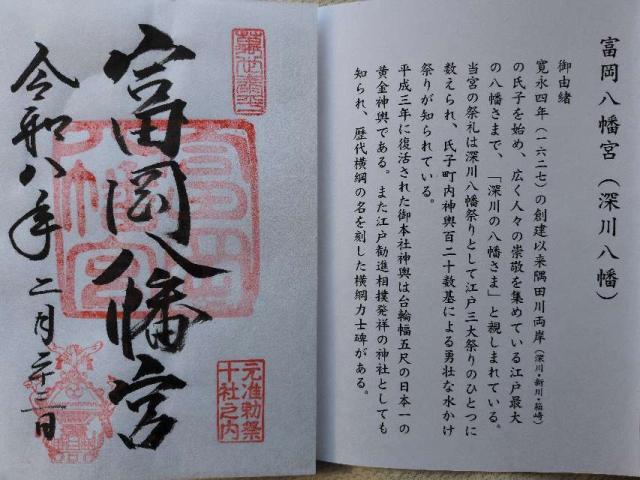 富岡八幡宮（深川八幡）
御由緒
寛永四年（一六二七）の創建以来隅田川両岸（深川・新川・箱崎）
の氏子を始め、広く人々の崇敬を集めている江戸最大
の八幡さまで、「深川の八幡さま」と親しまれている。
当宮の祭礼は深川八幡祭りとして江戸三大祭りのひとつに
数えられ、氏子町内神輿百二十数基による勇壮な水かけ
祭りが知られている。
平成三年に復活された御本社神輿は台輪幅五尺の日本一の
黄金神輿である。また江戸勧進相撲発祥の神社としても
知られ、歴代横綱の名を刻した横綱力士碑がある。
富岡八幡宮
元准勅祭
十社之内
富岡八幡宮
令和八年二月二十二日